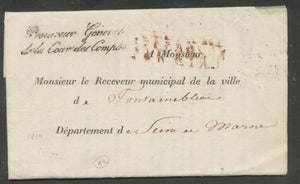 Procureur Général
de la Cour des Comptes
A Monsieur
Monsieur le Receveur municipal de la ville
de Fontainebleau
Département de Seine et Marne